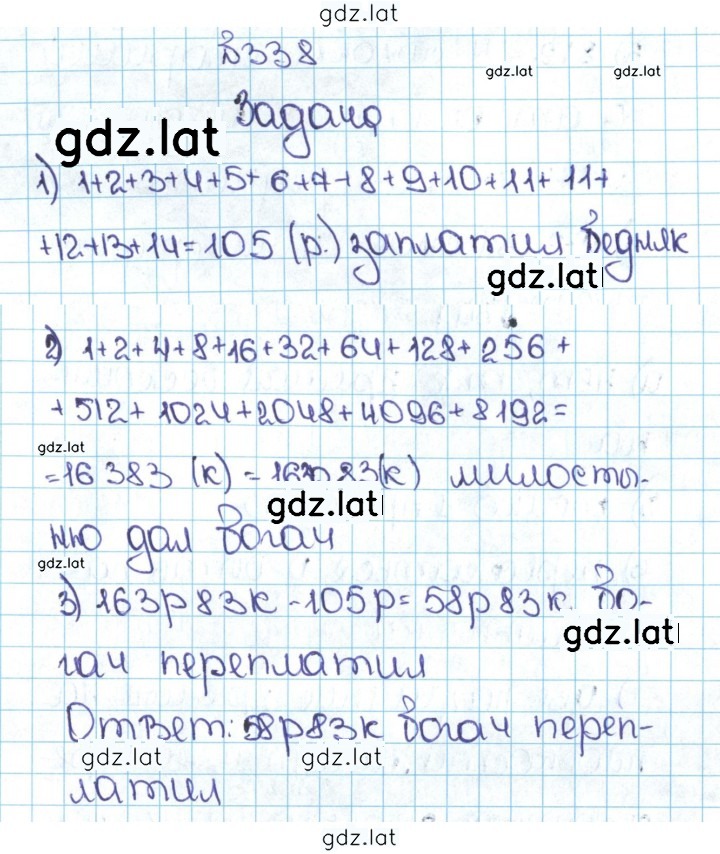 gdz.lat
№338
gdz.lat gdz.lat
Задача
gdz.lat
1) 1+2+3+4+5+6+7+8+9+10+11+11+
+12+13+14=105 (р.) заплатил бедняк
gdz.lat
2) 1+2+4+8+16+32+64+128+256+
+512+1024+2048+4096+8192=
gdz.lat
=16383 (к) = 83(к) милосты-
gdz.lat
ню дал богач
gdz.lat
3) 163р83к-105р=58р83к. бо-
gdz.lat
гач переплатил
Ответ: 58р83к богач переп-
gdz.lat gdz.lat
латил
gdz.lat